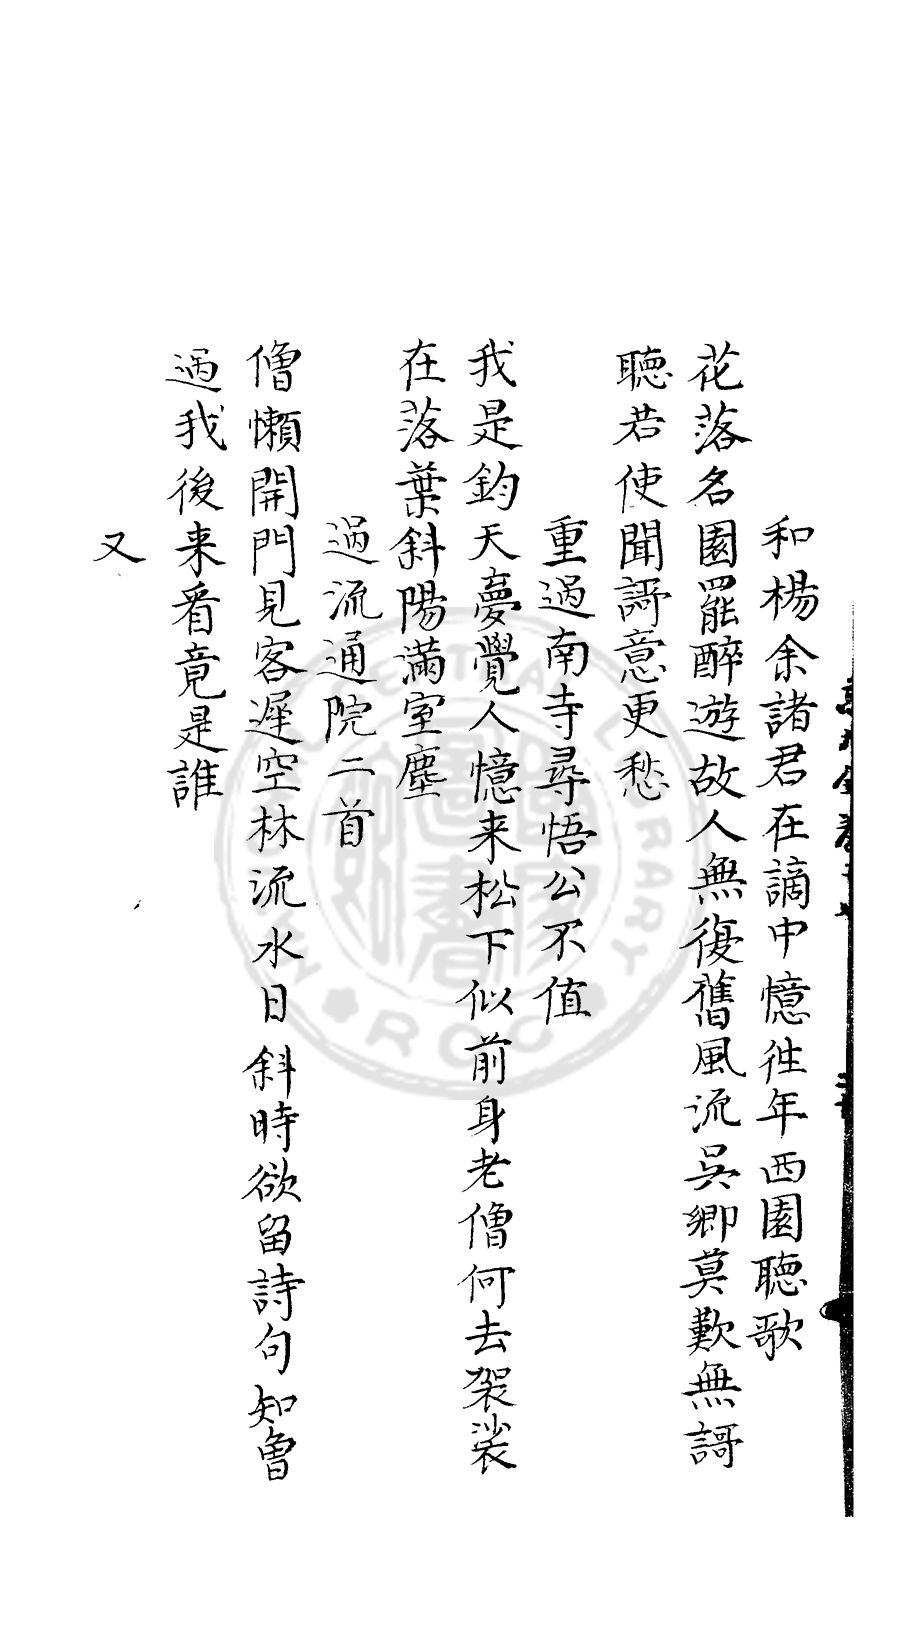 和楊余諸君在謫中憶徃年西園聴歌
花落名園罷醉遊故人無復舊風流吳卿莫歎無謌
聴若使聞謌意更愁
重過南寺尋悟公不值
我是鈞天夢覺人憶来松下似前身老僧何去袈裟
在落葉斜陽滿室塵
過流通院二首
僧懶開門見客遲空林流水日斜時欲留詩句知曾
過我後来看竟是誰
又
CENTRAL LIBRARY
ROC